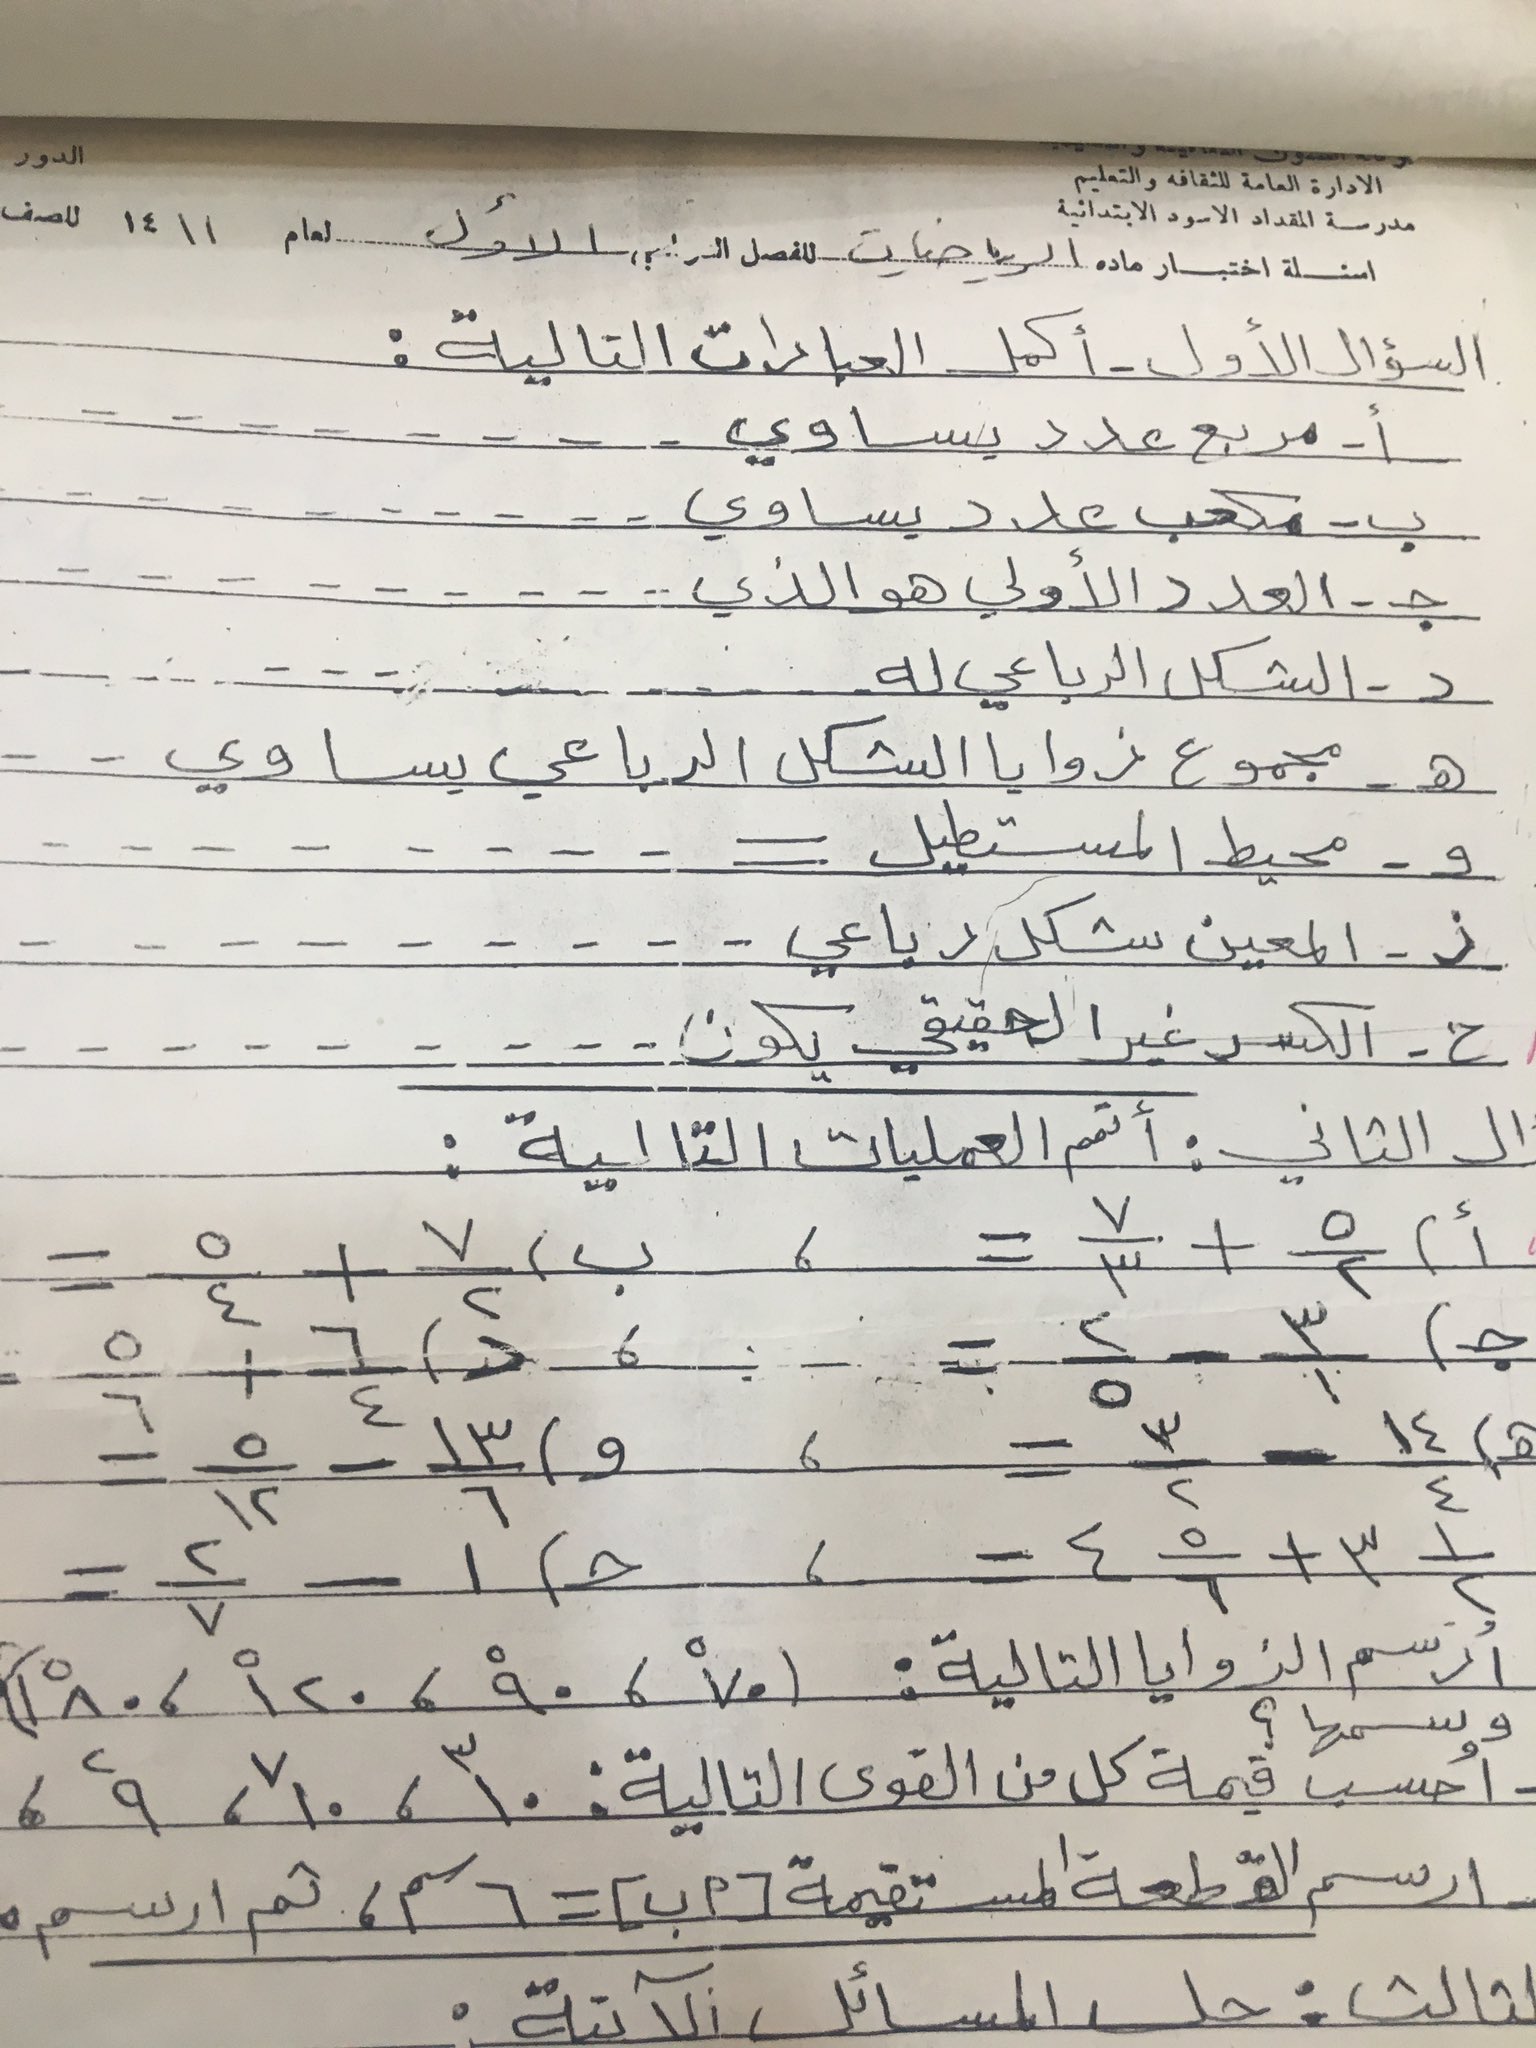 الدور
الادارة العامة للثقافه والتعليم
مدرسة المقداد الاسود الابتدائية
اسئلة اختبار ماده الرياضيات للفصل الدراسي الأول لعام ١٤١١ للصف
السؤال الأول - أكمل العبارات التالية :
أ - مربع عدد يساوي - - - - - - - -
ب - مكعب عدد يساوي - - - - - - - -
جـ - العدد الأولي هو الذي - - - - - - - -
د - الشكل الرباعي له - - - - - - - -
هـ - مجموع زوايا الشكل الرباعي يساوي - -
و - محيط المستطيل = - - - - - - - -
ز - المعين شكل رباعي - - - - - - - - -
ح - الكسر غير الحقيقي يكون - - - - - - - -
ال الثاني : أتمم العمليات التالية :
أ) ٥/٢ + ٧/٣ = ، ب) ٧/٢ + ٥/٤ =
جـ) ٣/١ - ٢/٥ = ، د) ٦/٤ + ٥/٦ =
هـ) ١٤/٤ - ٣/٢ = ، و) ١٣/٦ - ٥/١٢ =
١/٢ ٣ + ٥/٦ ٤ = ، ح) ١ - ٢/٧ =
أرسم الزوايا التالية : (٧٠° ، ٩٠° ، ١٢٠° ، ١٨٠°)
وسمها ؟
- أحسب قيمة كل من القوى التالية : ١٠^٣ ، ١٠^٧ ، ٩^٢ ،
- ارسم القطعة المستقيمة [أ ب] = ٦ سم ، ثم ارسم
الثالث : حل المسائل الآتية :